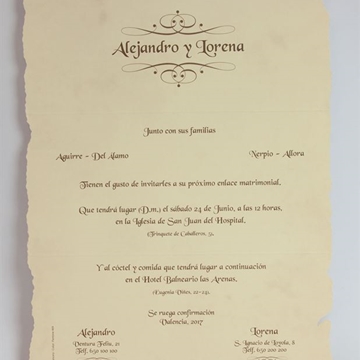 Alejandro y Lorena
Junto con sus familias
Aguirre - Del Alamo
Nerpio - Allora
Tienen el gusto de invitarles a su próximo enlace matrimonial,
Que tendrá lugar (D.m.) el sábado 24 de Junio, a las 12 horas,
en la Iglesia de San Juan del Hospital,
(Trinquete de Caballeros, 5),
Y al cóctel y comida que tendrá lugar a continuación
en el Hotel Balneario las Arenas,
(Eugenia Viñes, 22-24),
Se ruega confirmación
Valencia, 2017
Alejandro
Ventura Feliu, 21
Telf. 650 100 100
Lorena
S. Ignacio de Loyola, 8
Telf. 650 200 200